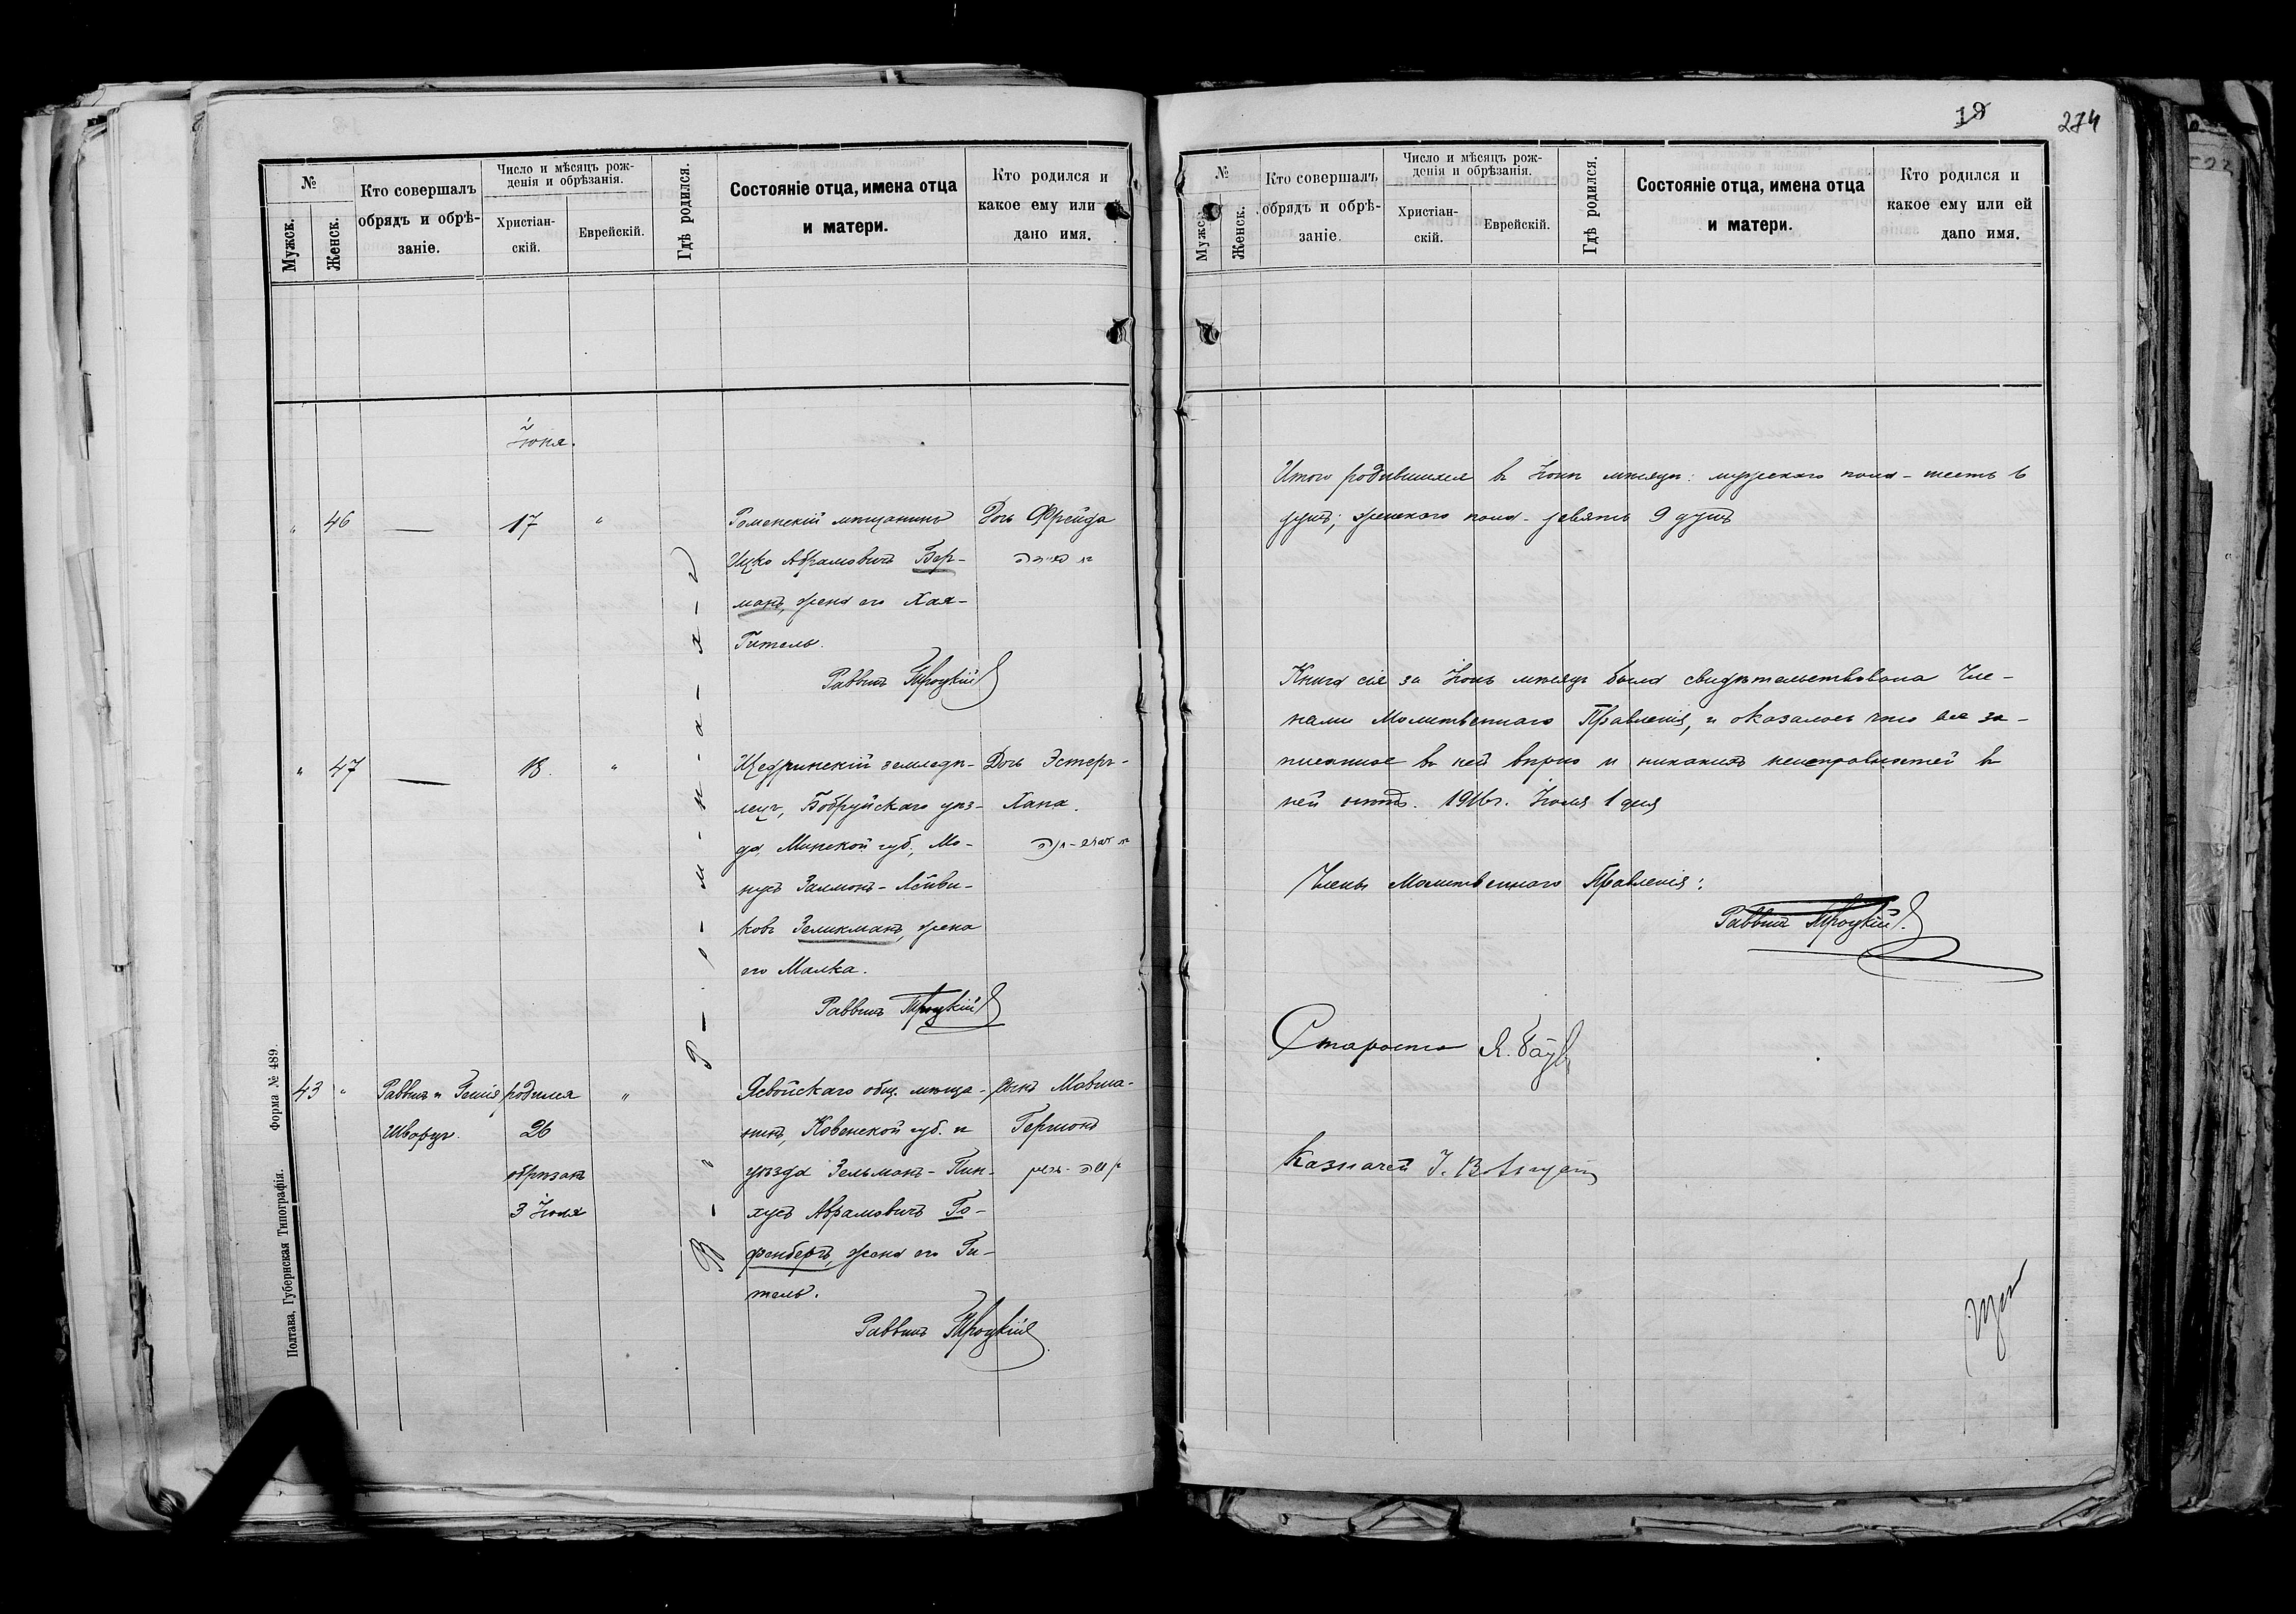 №
Мужск.
Женск.
Кто совершалъ
обрядъ и обрѣ-
заніе.
Число и мѣсяцъ рож-
денія и обрѣзанія.
Христіан-
скій.
Еврейскій.
Гдѣ родился.
Состояніе отца, имена отца
и матери.
Кто родился и
какое ему или
дано имя.
Іюня.
" 46 — 17 "
Роменскій мѣщанинъ
Ицко Абрамовичъ Бер-
манъ, жена его Хая-
Гитель.
Раввинъ Троцкій
Дочь Фрейда
" 47 — 18. "
Щедринскій земледѣ-
лецъ, Бобруйскаго уѣз-
да, Минской губ., Мо-
нусъ Залманъ-Лейви-
ковъ Зеликманъ, жена
его Малка.
Раввинъ Троцкій
Дочь Эстеръ-
Хана.
43 "
Раввинъ и
Шварцъ.
родился
26
обрѣзанъ
3 Іюля
"
общ. мѣща-
нинъ, Ковенской губ. и
уѣзда Зельманъ-Пин-
хусъ Абрамовичъ Го-
фенбергъ, жена его Ги-
тель.
Раввинъ Троцкій
Сынъ Мовша-
Гершонъ
Форма № 489.
Полтава, Губернская Типографія.
19
274
№
Мужск.
Женск.
Кто совершалъ
обрядъ и обрѣ-
заніе.
Число и мѣсяцъ рож-
денія и обрѣзанія.
Христіан-
скій.
Еврейскій.
Гдѣ родился.
Состояніе отца, имена отца
и матери.
Кто родился и
какое ему или ей
дано имя.
Итого родившихся въ Іюнѣ мѣсяцѣ: мужескаго пола - шесть 6
душъ; женскаго пола - девять 9 душъ
Книга сія за Іюнь мѣсяцъ была свидѣтельствована Чле-
нами Молитвеннаго Правленія, и оказалось что все за-
писанное въ ней вѣрно и никакихъ неисправностей въ
ней нѣтъ. 1916г. Іюля 1 дня
Члены Молитвеннаго Правленія:
Раввинъ Троцкій.
Староста
Казначей